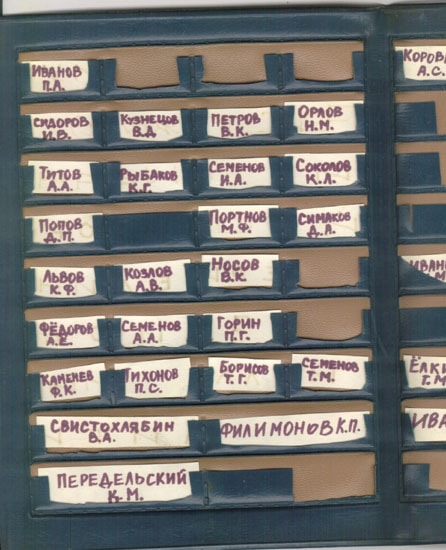 ИВАНОВ
П.А.
КОРОВ
А.С.
СИДОРОВ
И.В.
КУЗНЕЦОВ
В.Д.
ПЕТРОВ
В.К.
ОРЛОВ
Н.М.
ТИТОВ
А.А.
РЫБАКОВ
К.Г.
СЕМЕНОВ
И.А.
СОКОЛОВ
К.Л.
ПОПОВ
Д.П.
ПОРТНОВ
М.Ф.
СИМАКОВ
Д.А.
ЛЬВОВ
К.Ф.
КОЗЛОВ
А.В.
НОСОВ
В.К.
ИВАН
М
ФЁДОРОВ
А.Е.
СЕМЕНОВ
А.А.
ГОРИН
П.Г.
КАМЕНЕВ
Ф.К.
ТИХОНОВ
П.С.
БОРИСОВ
Т.Г.
СЕМЕНОВ
Т.М.
ЁЛКИ
Т.М
СВИСТОХЛЯБИН
В.А.
ФИЛИМОНОВ К.П.
ИВА
ПЕРЕДЕЛЬСКИЙ
К.М.